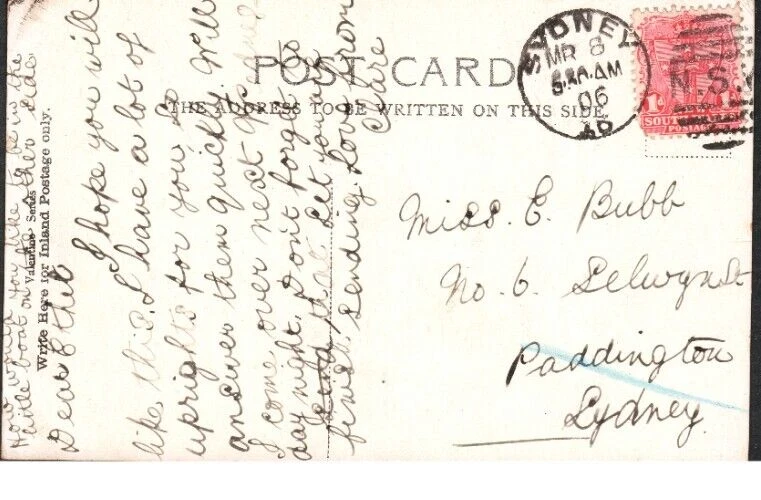 POST CARD
THE ADDRESS TO BE WRITTEN ON THIS SIDE
SYDNEY
MR 8
AM
06
N.S.
1D
1
SOUTH
POSTAGE
Miss. E. Bubb
No. 6. Selwyn St
Paddington
Sydney.
Valentine Series
Write Here for Inland Postage only.
How would you like to be in the
little boat on the other side
Dear Ethel
I hope you will
like this. I have a lot of
uprights for you so
answer them quickly. Will
I come over next Wednes
day night. Don't forget to
send that let your
finest. Sending Love from
Clare